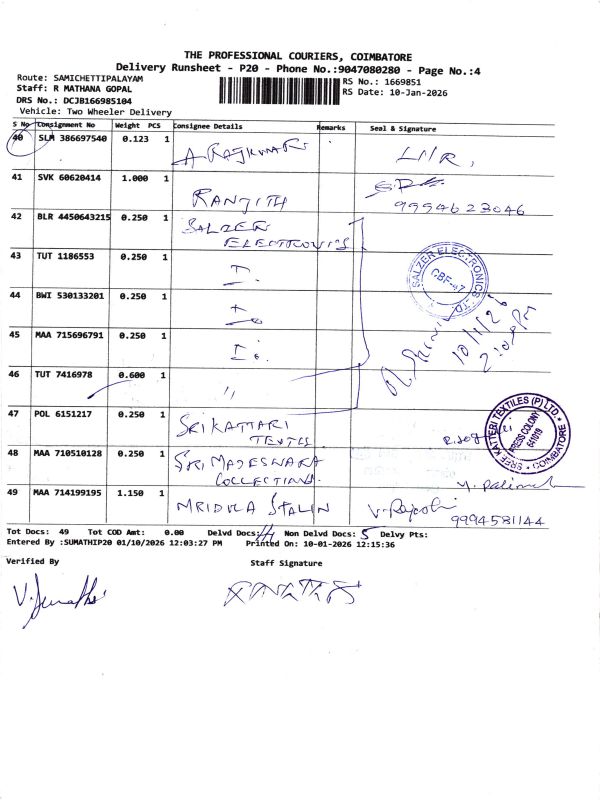 THE PROFESSIONAL COURIERS, COIMBATORE
Delivery Runsheet - P20 - Phone No.:9047080280 - Page No.:4
Route: SAMICHETTIPALAYAM
RS No.: 1669851
Staff: R MATHANA GOPAL
RS Date: 10-Jan-2026
DRS No.: DCJB166985104
Vehicle: Two Wheeler Delivery
S No Consignment No Weight PCS Consignee Details Remarks Seal & Signature
40 SLM 386697540 0.123 1 A RAJKUMAR
41 SVK 60620414 1.000 1 RANJITH 9994623046
42 BLR 4450643215 0.250 1 SALZER
ELECTRONICS
43 TUT 1186553 0.250 1
SALZER ELECTRONICS LTD.
CBF-47
44 BWI 530133201 0.250 1
10/1/26
45 MAA 715696791 0.250 1
46 TUT 7416978 0.600 1 "
47 POL 6151217 0.250 1 SRI KATTARI
TEXTLS
SREE KATTERI TEXTILES (P) LTD.
PRESS COLONY
641019
COIMBATORE
48 MAA 710510128 0.250 1 SRI MAJESWARA
COLLECTIONS
49 MAA 714199195 1.150 1 MRIDULA STALIN
9994581144
Tot Docs: 49 Tot COD Amt: 0.00 Delvd Docs: 44 Non Delvd Docs: 5 Delvy Pts:
Entered By :SUMATHIP20 01/10/2026 12:03:27 PM Printed On: 10-01-2026 12:15:36
Verified By Staff Signature